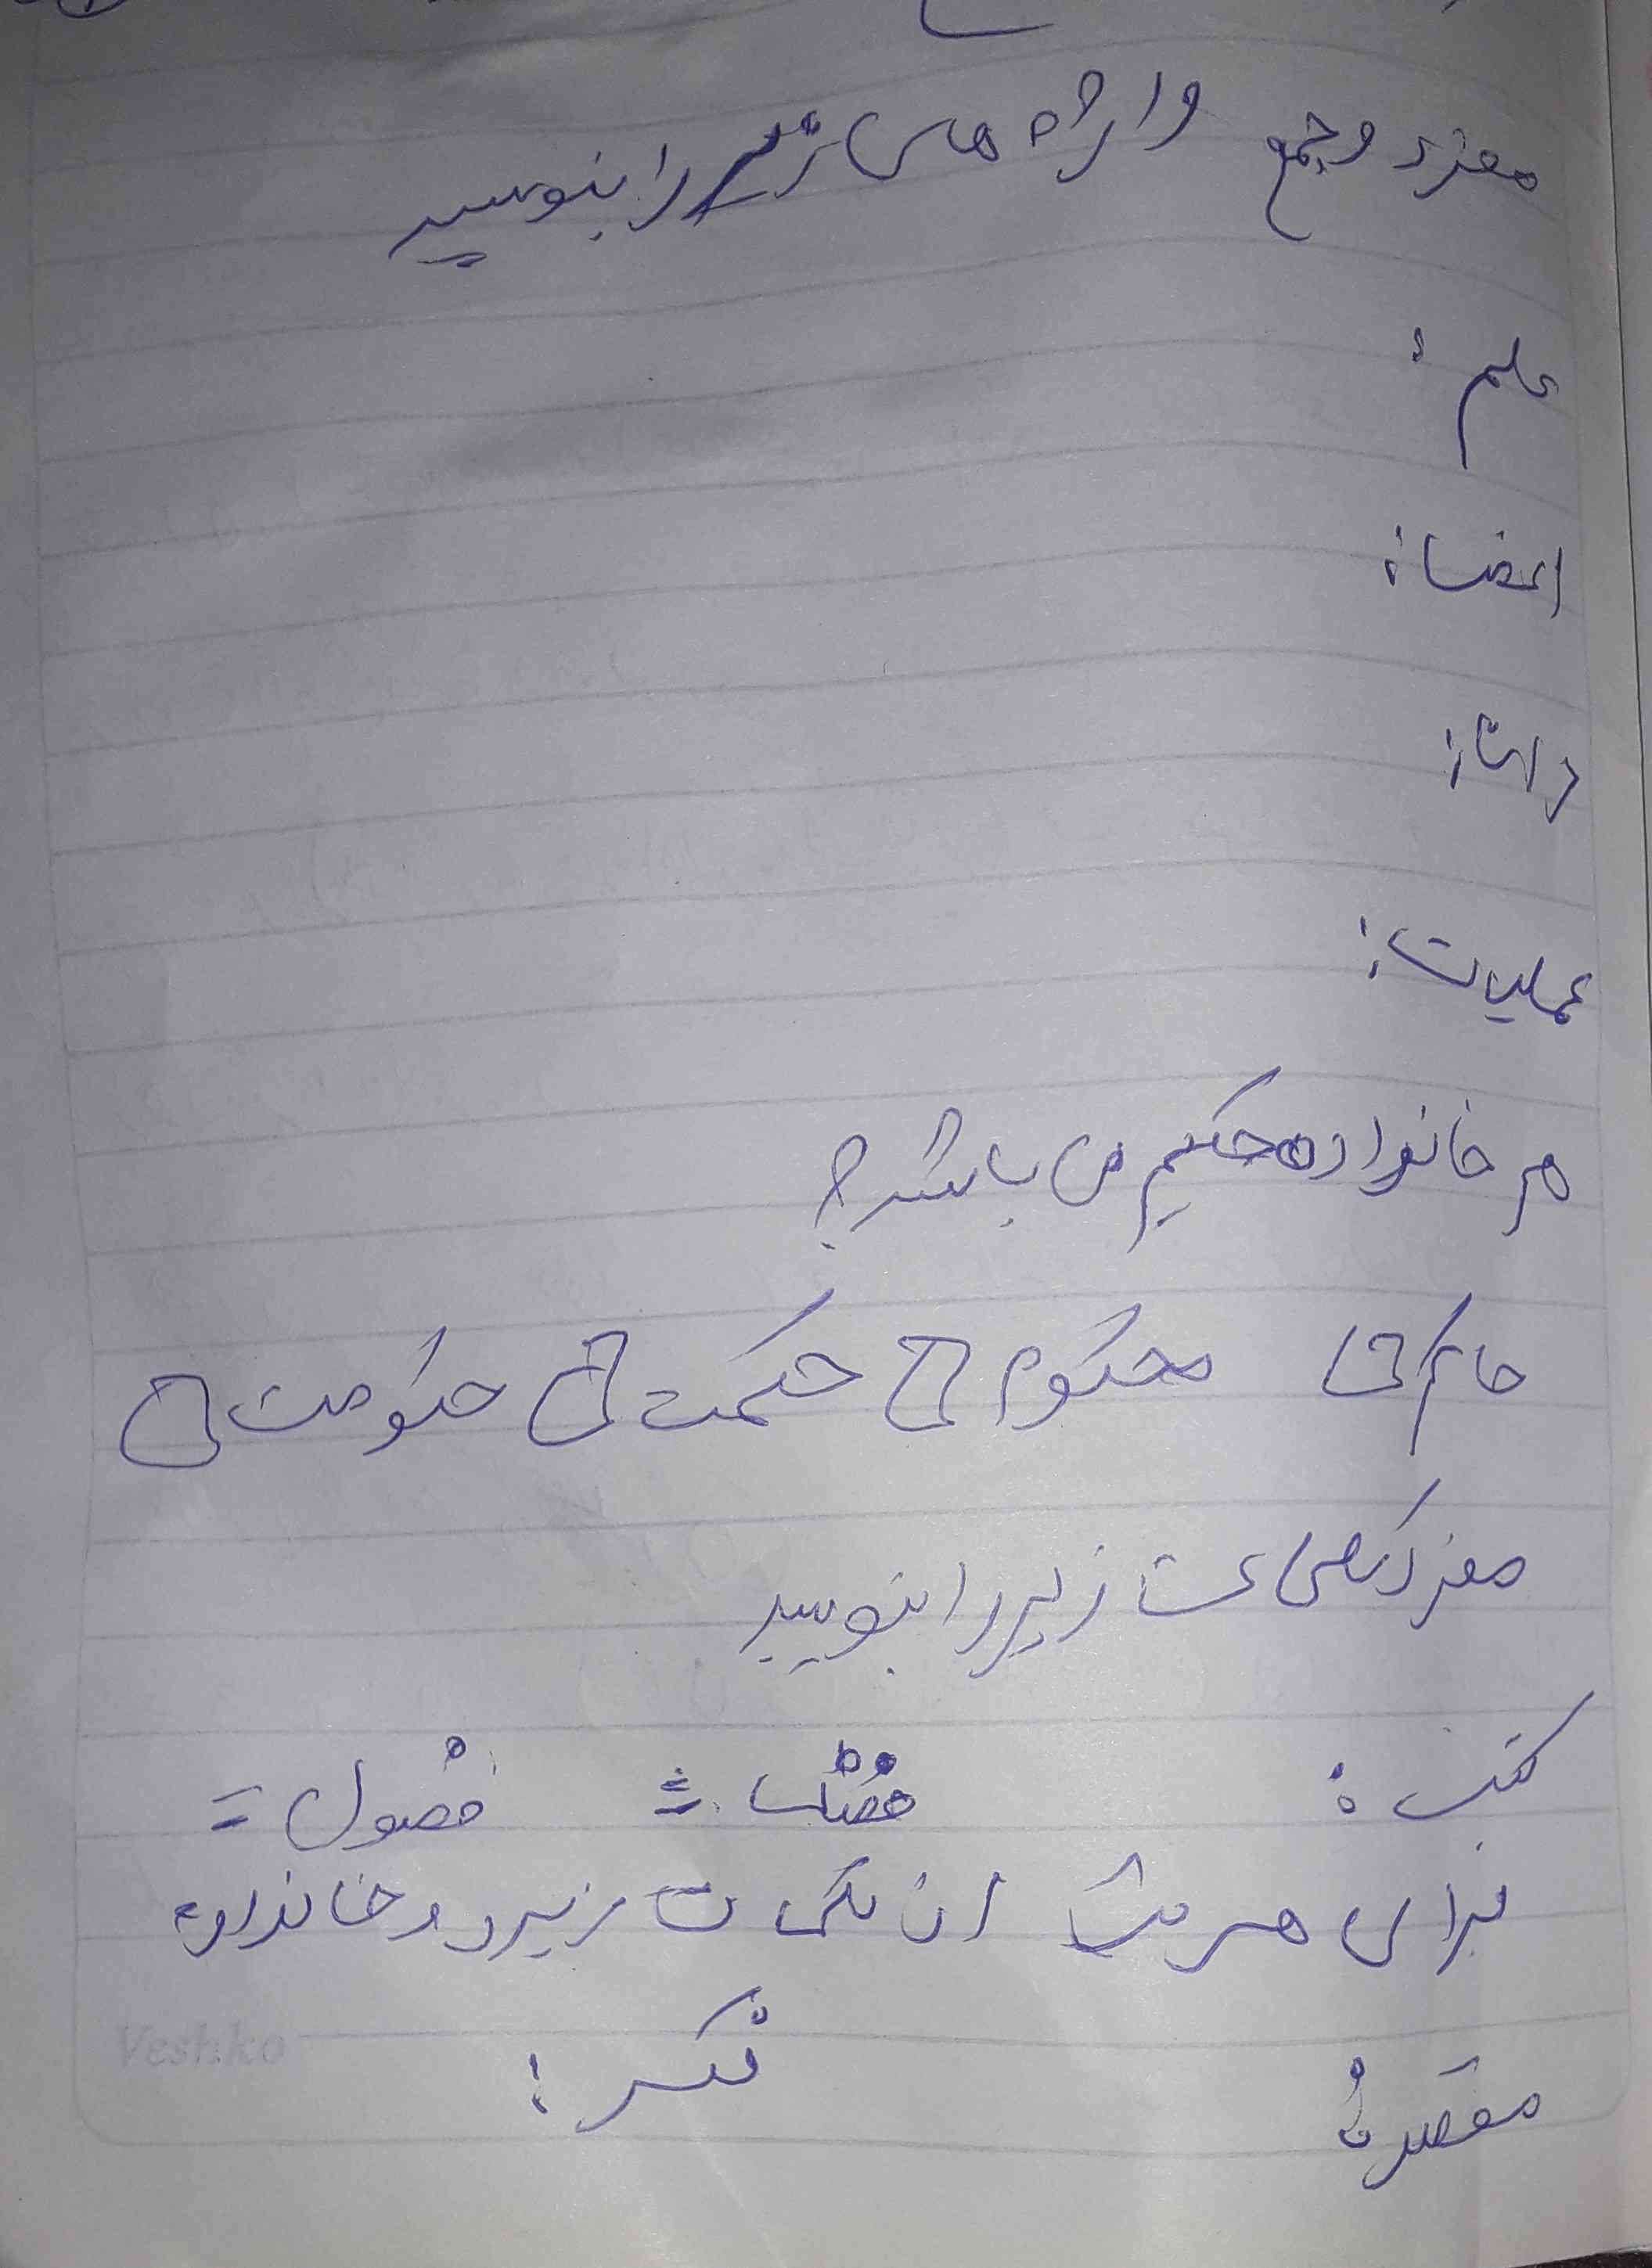 مفرد و جمع واژه های زیر را بنویسید
علم :
اعضا :
دانا :
عملیات :
هم خانواده حکیم می باشد؟
حاکم محکوم حکمت حکومت
مفرد کلمات زیر را بنویسید
کتب : فصول =
برای هر یک از کلمات زیر دو خانواده
مقصد : فکر :
Veshko